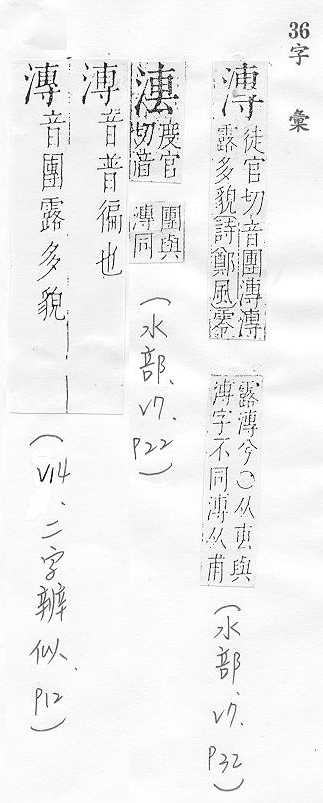 36
字彙
漙
徒官切音團漙漙
露多貌詩鄭風零
露漙兮○从叀與
溥字不同溥从甫
(水部、V7、P32)
度官
切音
團與
漙同
(水部、V7、P22)
溥音普徧也
漙音團露多貌
(V14、二字辨似、P12)